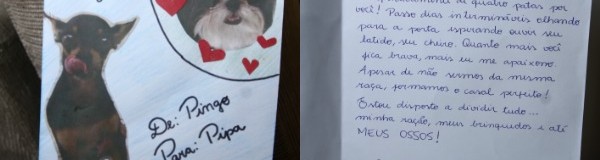 De: Pingo
Para: Pipa
de quatro patas por
você! Passo dias intermináveis olhando
para a porta esperando ouvir seu
latido, seu cheiro. Quanto mais você
fica brava, mais eu me apaixono.
Apesar de não sermos da mesma
raça, formamos o casal perfeito!
Estou disposto a dividir tudo...
minha ração, meus brinquedos e até
MEUS OSSOS!